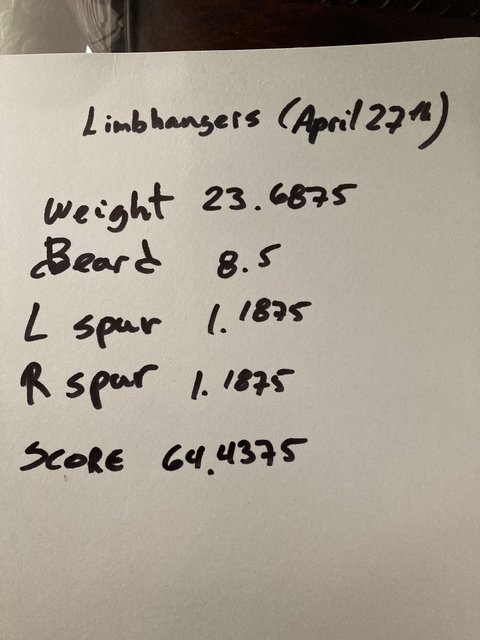 Limbhangers (April 27th)
Weight 23.6875
Beard 8.5
L spur 1.1875
R spur 1.1875
SCORE 64.4375